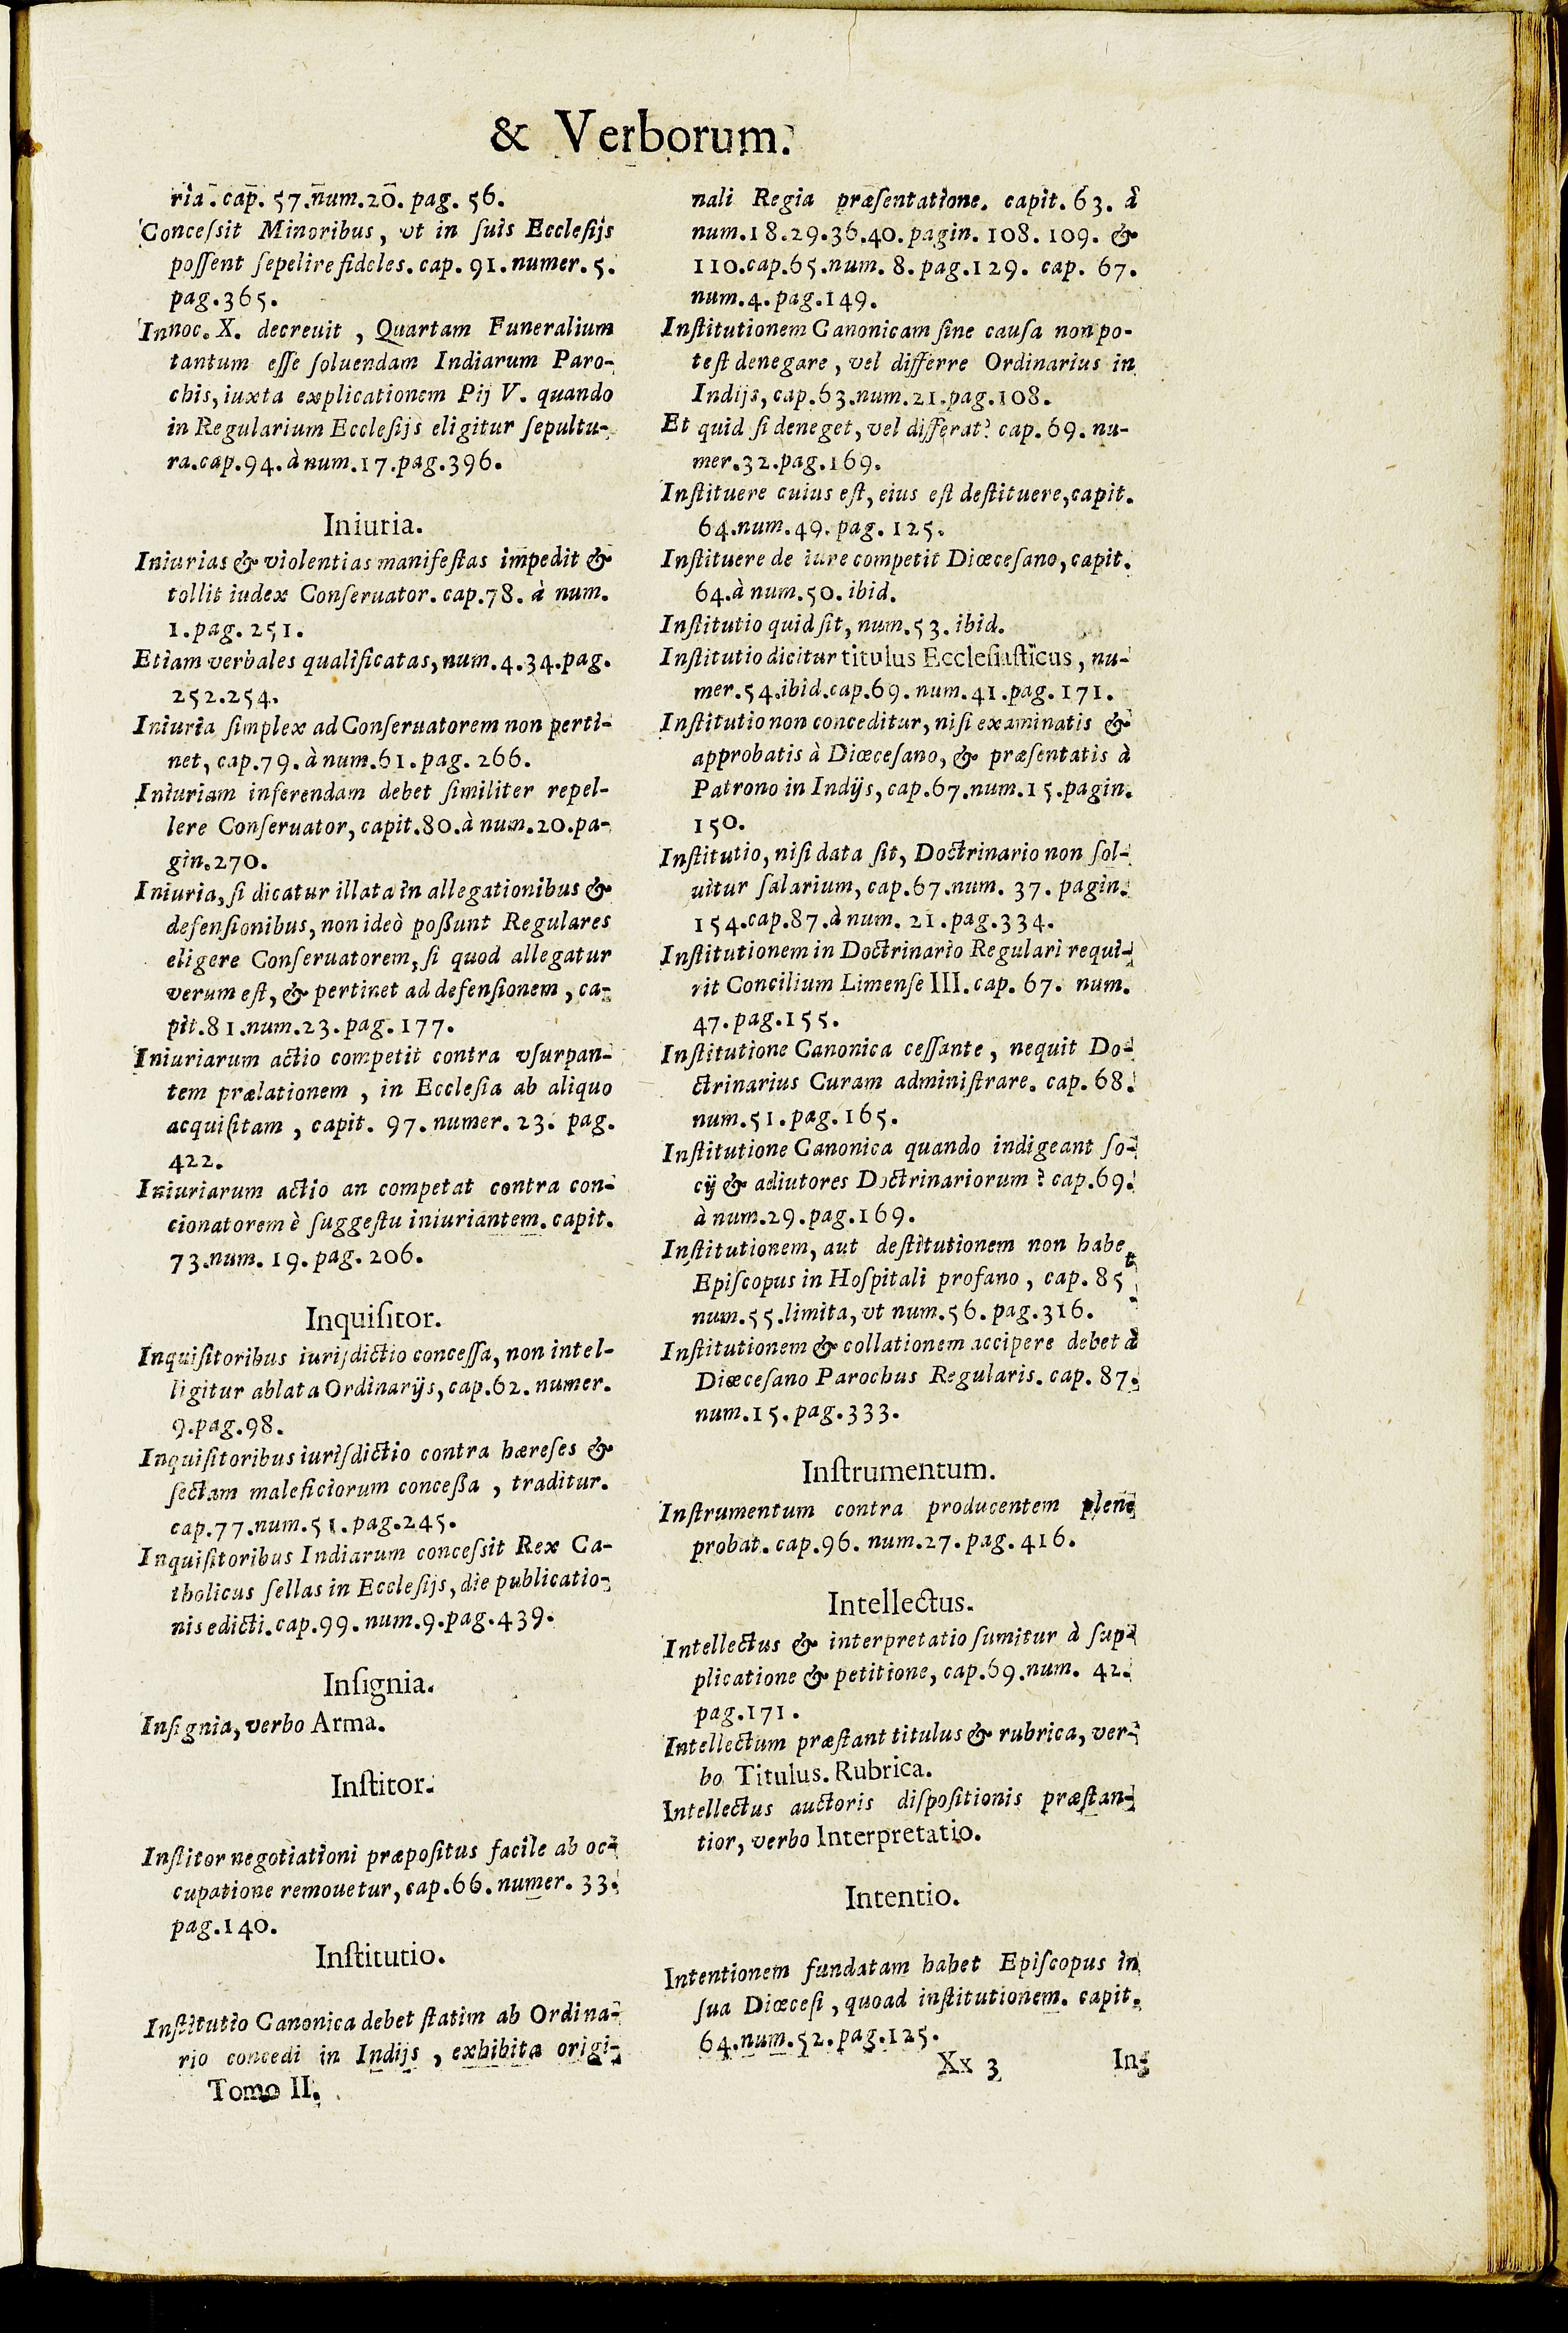 & Verborum.
ria. cap. 57. num. 20. pag. 56.
Concessit Minoribus, vt in suis Ecclesijs
possent sepelire fideles. cap. 91. numer. 5.
pag. 365.
Innoc. X. decreuit, Quartam Funeralium
tantum esse soluendam Indiarum Paro-
chis, iuxta explicationem Pij V. quando
in Regularium Ecclesijs eligitur sepultu-
ra. cap. 94. à num. 17. pag. 396.
Iniuria.
Iniurias & violentias manifestas impedit &
tollit iudex Conseruator. cap. 78. à num.
1. pag. 251.
Etiam verbales qualificatas, num. 4. 34. pag.
252. 254.
Iniuria simplex ad Conseruatorem non perti-
net, cap. 79. à num. 61. pag. 266.
Iniuriam inferendam debet similiter repel-
lere Conseruator, capit. 80. à num. 20. pa-
gin. 270.
Iniuria, si dicatur illata in allegationibus &
defensionibus, non ideò poßunt Regulares
eligere Conseruatorem, si quod allegatur
verum est, & pertinet ad defensionem, ca-
pit. 81. num. 23. pag. 177.
Iniuriarum actio competit contra vsurpan-
tem prælationem, in Ecclesia ab aliquo
acquisitam, capit. 97. numer. 23. pag.
422.
Iniuriarum actio an competat contra con-
cionatorem è suggestu iniuriantem. capit.
73. num. 19. pag. 206.
Inquisitor.
Inquisitoribus iurisdictio concessa, non intel-
ligitur ablata Ordinarijs, cap. 62. numer.
9. pag. 98.
Inquisitoribus iurisdictio contra hæreses &
sectam maleficiorum conceßa, traditur.
cap. 77. num. 51. pag. 245.
Inquisitoribus Indiarum concessit Rex Ca-
tholicus sellas in Ecclesijs, die publicatio-
nis edicti. cap. 99. num. 9. pag. 439.
Insignia.
Insignia, verbo Arma.
Institor.
Institor negotiationi præpositus facile ab oc-
cupatione remouetur, cap. 66. numer. 33.
pag. 140.
Institutio.
Institutio Canonica debet statim ab Ordina-
rio concedi in Indijs, exhibita origi-
Tomo II.
nali Regia præsentatione. capit. 63. à
num. 18. 29. 36. 40. pagin. 108. 109. &
110. cap. 65. num. 8. pag. 129. cap. 67.
num. 4. pag. 149.
Institutionem Canonicam sine causa non po-
test denegare, vel differre Ordinarius in
Indijs, cap. 63. num. 21. pag. 108.
Et quid si deneget, vel differat? cap. 69. nu-
mer. 32. pag. 169.
Instituere cuius est, eius est destituere, capit.
64. num. 49. pag. 125.
Instituere de iure competit Diœcesano, capit.
64. à num. 50. ibid.
Institutio quid sit, num. 53. ibid.
Institutio dicitur titulus Ecclesiasticus, nu-
mer. 54. ibid. cap. 69. num. 41. pag. 171.
Institutio non conceditur, nisi examinatis &
approbatis à Diœcesano, & præsentatis à
Patrono in Indijs, cap. 67. num. 15. pagin.
150.
Institutio, nisi data sit, Doctrinario non sol-
uitur salarium, cap. 67. num. 37. pagin.
154. cap. 87. à num. 21. pag. 334.
Institutionem in Doctrinario Regulari requi-
rit Concilium Limense III. cap. 67. num.
47. pag. 155.
Institutione Canonica cessante, nequit Do-
ctrinarius Curam administrare. cap. 68.
num. 51. pag. 165.
Institutione Canonica quando indigeant so-
cij & adiutores Doctrinariorum? cap. 69.
à num. 29. pag. 169.
Institutionem, aut destitutionem non habet
Episcopus in Hospitali profano, cap. 85.
num. 55. limita, vt num. 56. pag. 316.
Institutionem & collationem accipere debet à
Diœcesano Parochus Regularis. cap. 87.
num. 15. pag. 333.
Instrumentum.
Instrumentum contra producentem plene
probat. cap. 96. num. 27. pag. 416.
Intellectus.
Intellectus & interpretatio sumitur à sup-
plicatione & petitione, cap. 69. num. 42.
pag. 171.
Intellectum præstant titulus & rubrica, ver-
bo Titulus. Rubrica.
Intellectus auctoris dispositionis præstan-
tior, verbo Interpretatio.
Intentio.
Intentionem fundatam habet Episcopus in
sua Diœcesi, quoad institutionem. capit.
64. num. 52. pag. 125.
Xx 3 In-